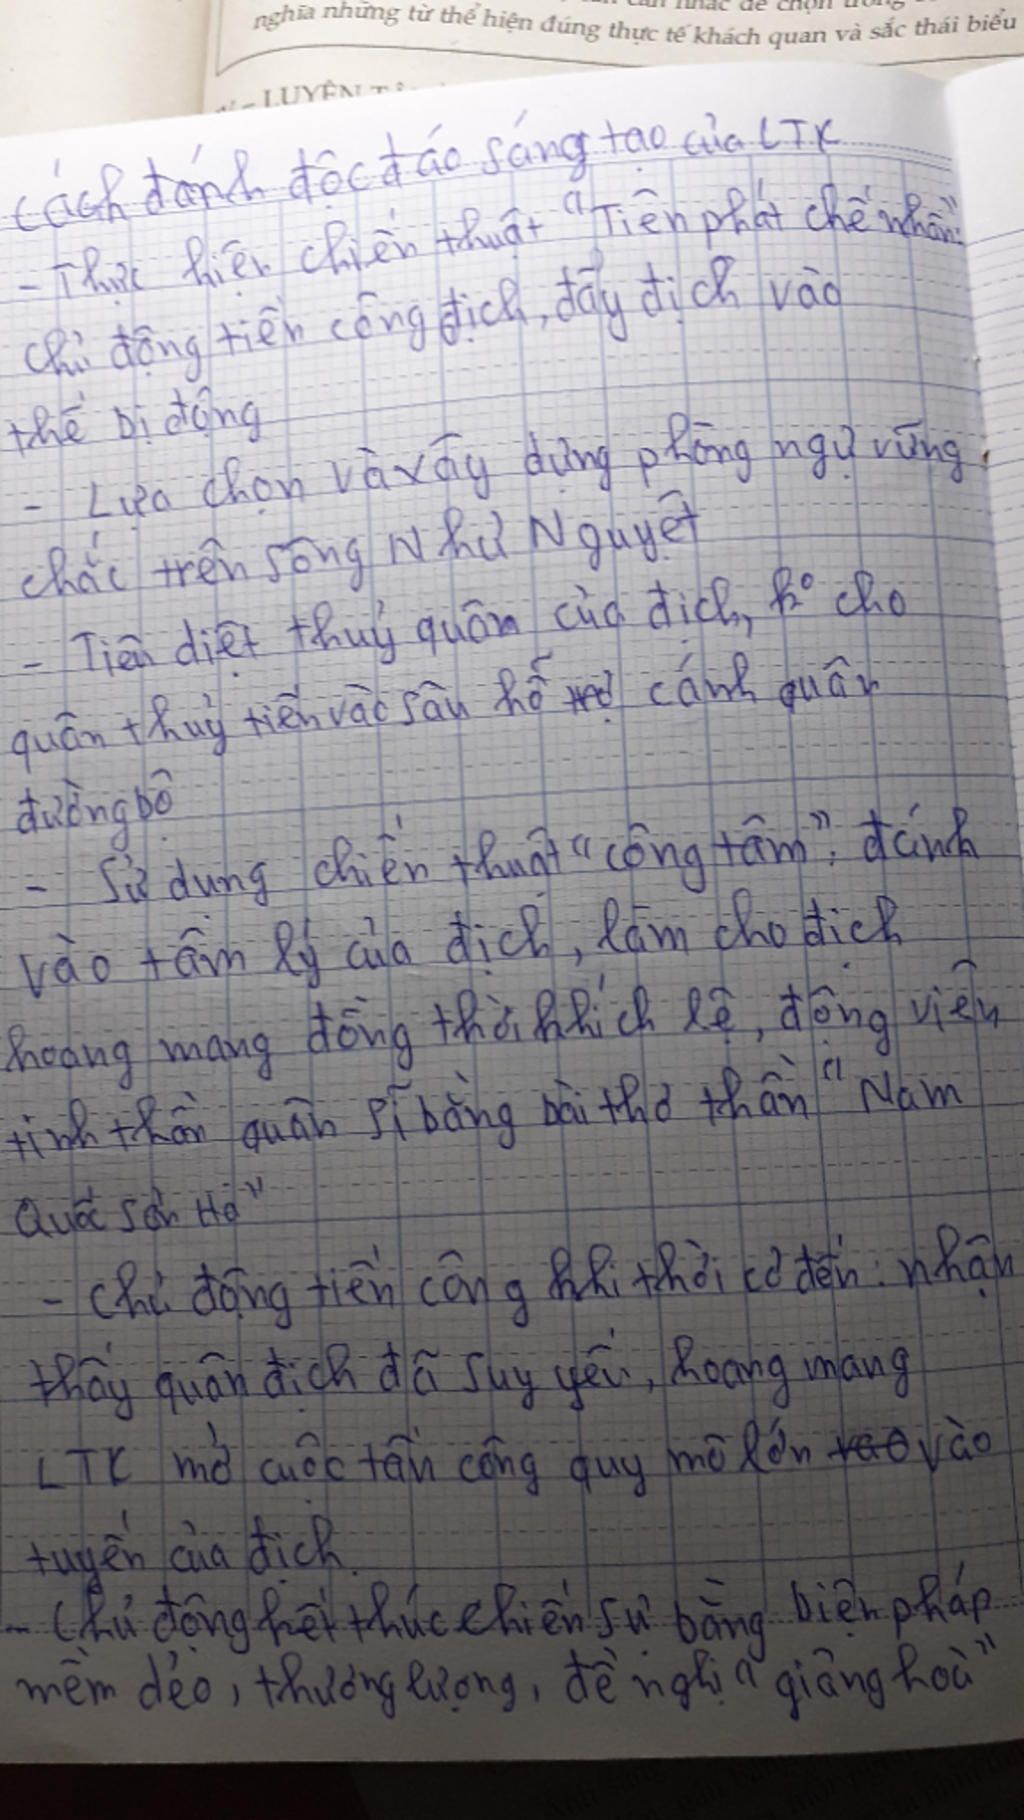 nghĩa những từ thể hiện đúng thực tế khách quan và sắc thái biểu
LUYỆN
Cách đánh độc đáo sáng tạo của LTK
- Thực hiện chiến thuật "Tiên phát chế nhân":
chủ động tiến công địch, đẩy địch vào
thế bị động
- Lựa chọn và xây dựng phòng ngự vững
chắc trên sông Như Nguyệt
- Tiêu diệt thuỷ quân của địch, k° cho
quân thuỷ tiến vào sâu hỗ trợ cánh quân
đường bộ
- Sử dụng chiến thuật "công tâm": đánh
vào tâm lý của địch, làm cho địch
hoang mang đồng thời khích lệ, động viên
tinh thần quân sĩ bằng bài thơ thần "Nam
Quốc Sơn Hà"
- Chủ động tiến công khi thời cơ đến: nhận
thấy quân địch đã suy yếu, hoang mang
LTK mở cuộc tấn công quy mô lớn vào
tuyến của địch.
- Chủ động kết thúc chiến sự bằng biện pháp
mềm dẻo, thương lượng, đề nghị "giảng hoà"